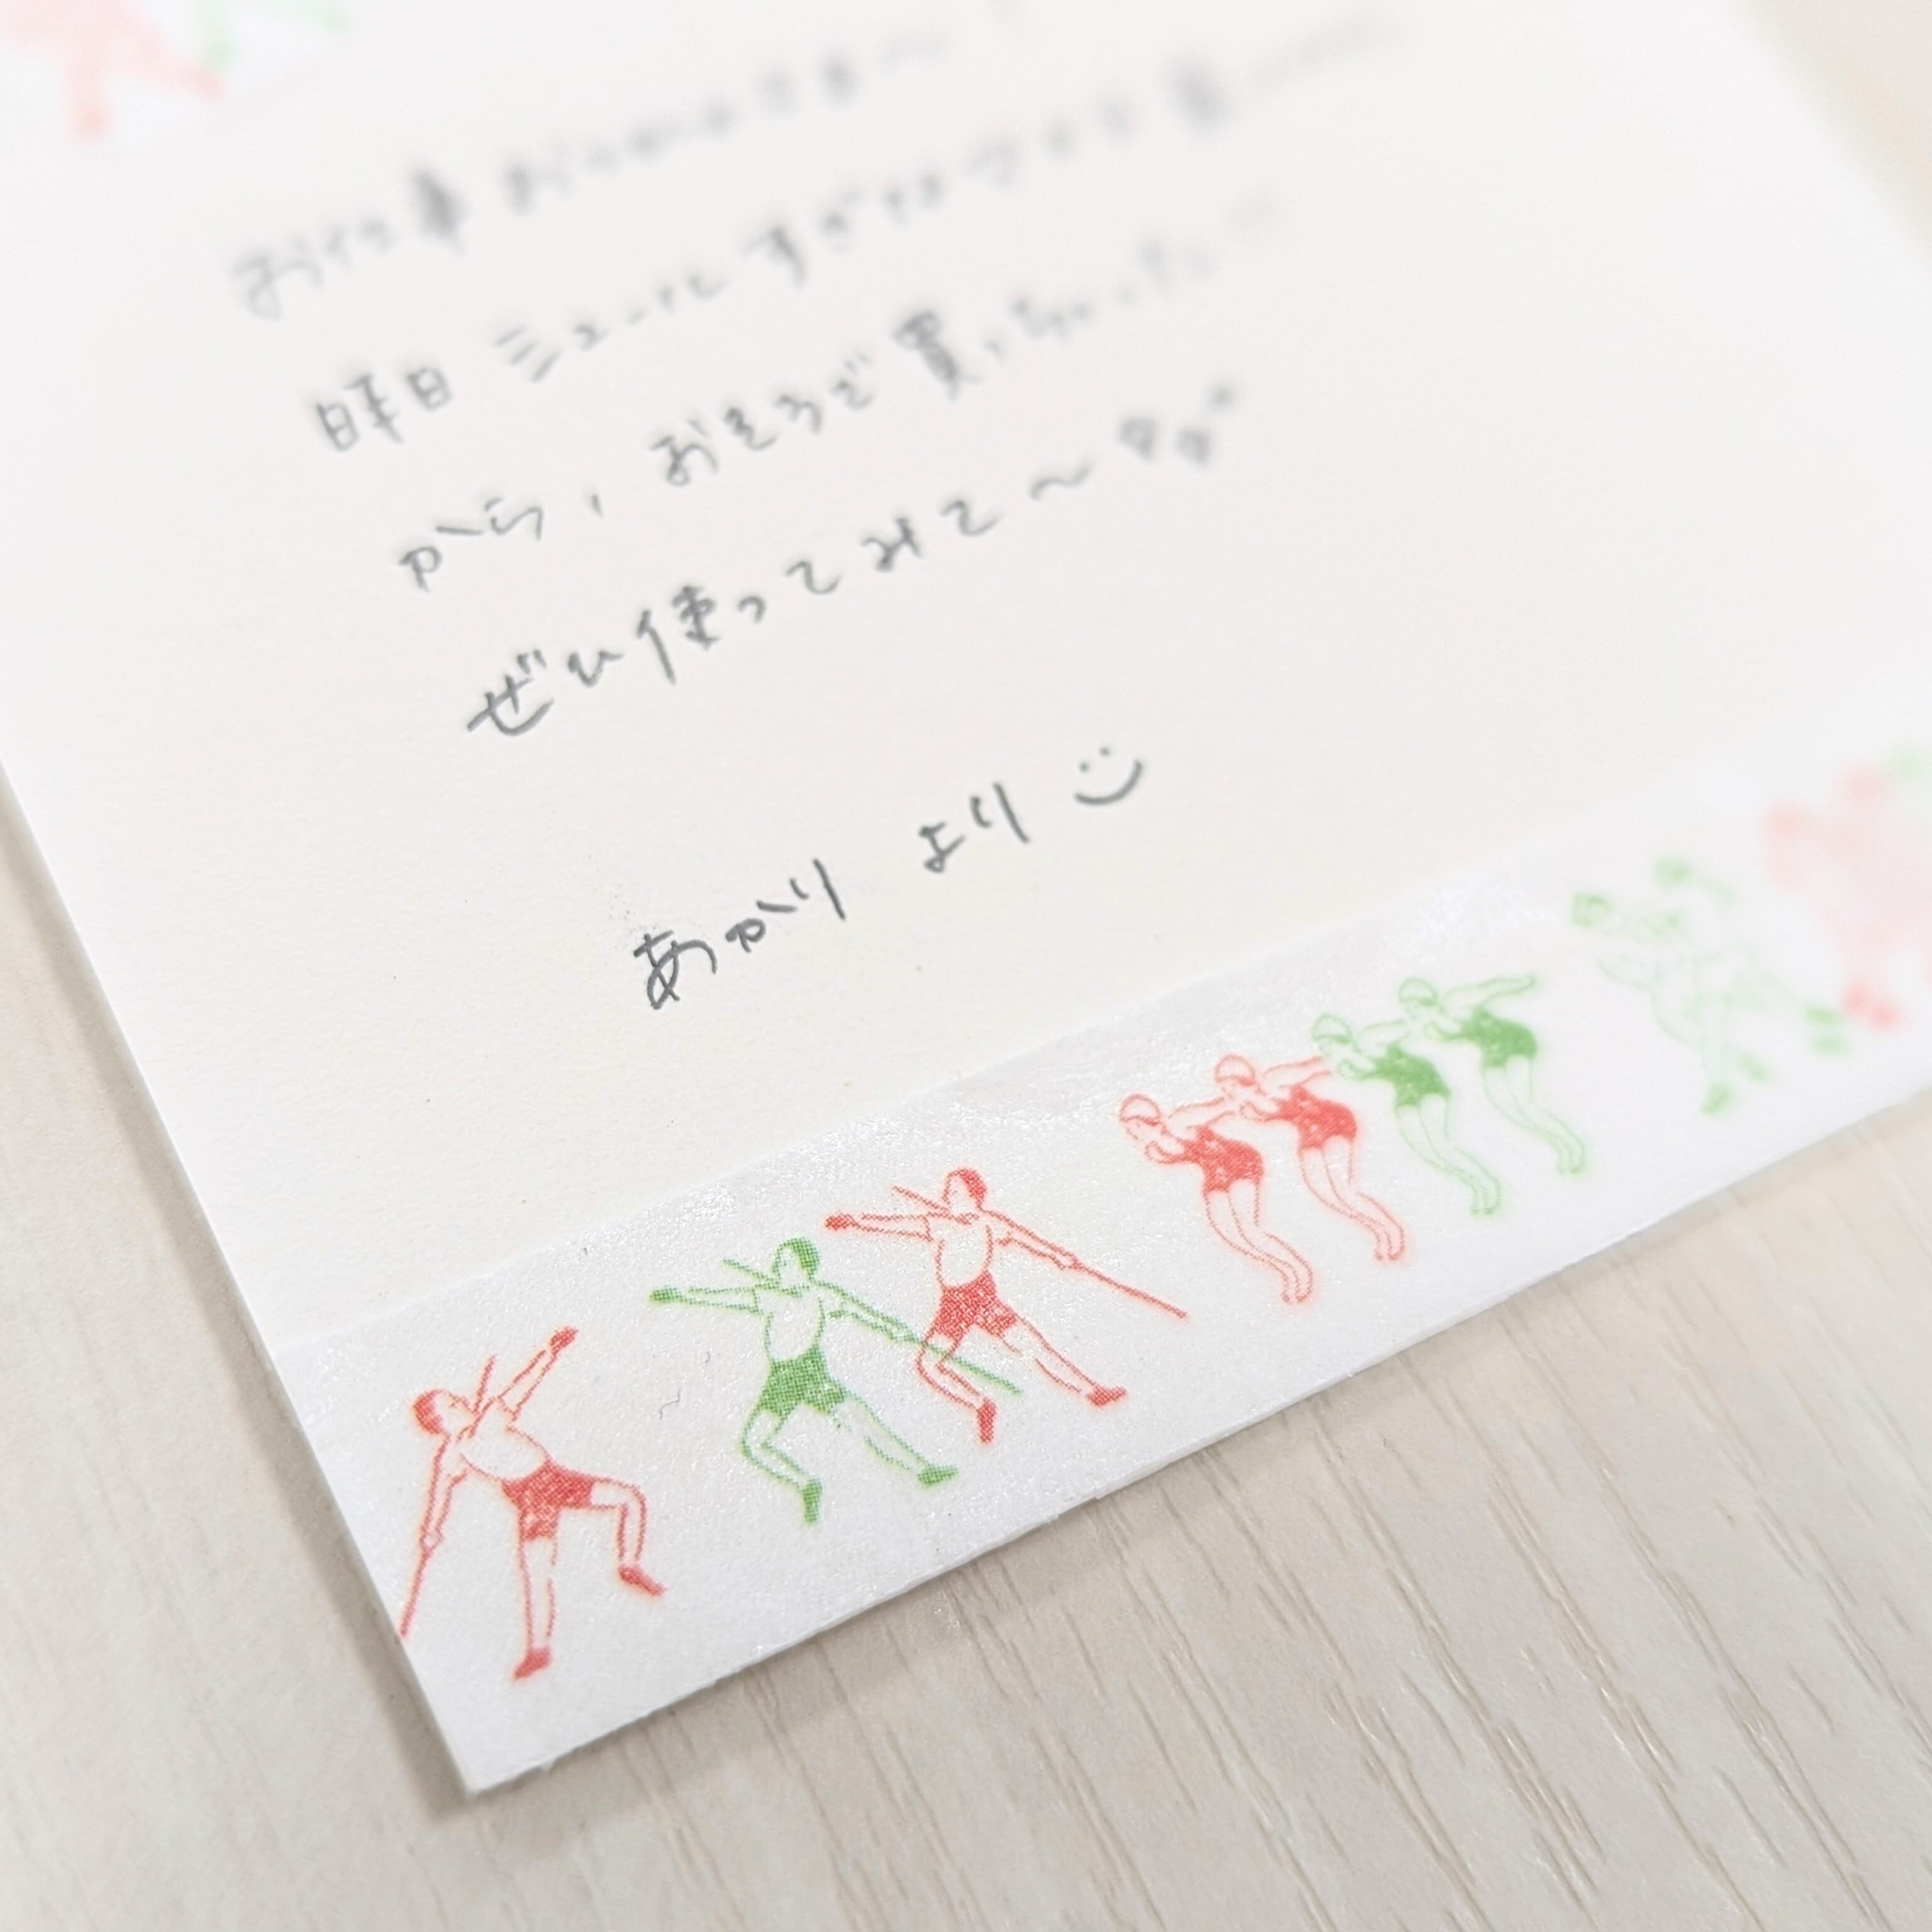 お仕事おつかれさま〜
昨日 ミュートと すぎは
から、おそろで買っちゃった
ぜひ使ってみて〜
あかり より